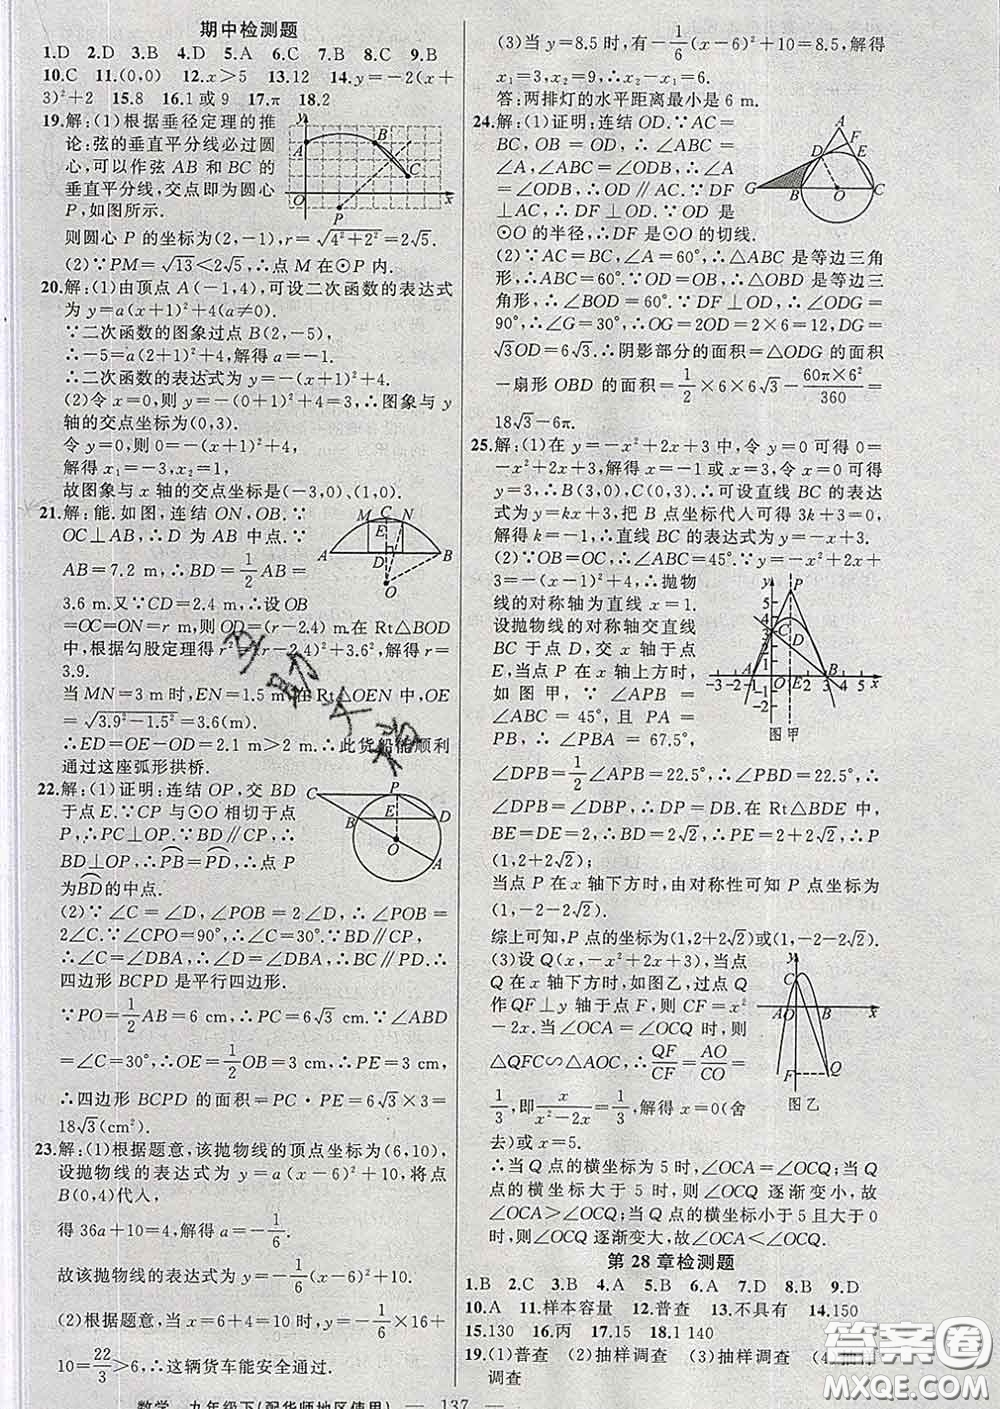 期中检测题
1.D 2.D 3.B 4.D 5.A 6.C 7.B 8.C 9.B
10.C 11.(0,0) 12.x>5 13.12 14.y=-2(x+
3)²+2 15.8 16.1或9 17.π 18.2
19.解:(1)根据垂径定理的推
论:弦的垂直平分线必过圆
心,可以作弦 AB 和 BC 的
垂直平分线,交点即为圆心
P,如图所示.
则圆心 P 的坐标为(2,-1),r=√(4²+2²)=2√5.
(2)∵PM=√13<2√5,∴点 M 在⊙P 内.
20.解:(1)由顶点 A(-1,4),可设二次函数的表达式
为 y=a(x+1)²+4(a≠0).
∵二次函数的图象过点 B(2,-5),
∴-5=a(2+1)²+4,解得 a=-1.
∴二次函数的表达式为 y=-(x+1)²+4.
(2)令 x=0,则 y=-(0+1)²+4=3,∴图象与 y
轴的交点坐标为(0,3).
令 y=0,则 0=-(x+1)²+4,
解得 x₁=-3,x₂=1,
故图象与 x 轴的交点坐标是(-3,0)、(1,0).
21.解:能.如图,连结 ON,OB.∵
OC⊥AB,∴D 为 AB 中点.∵
AB=7.2 m,∴BD=1/2 AB=
3.6 m.又∵CD=2.4 m,∴设 OB
=OC=ON=r m,则 OD=(r-2.4) m.在 Rt△BOD
中,根据勾股定理得 r²=(r-2.4)²+3.6²,解得 r=
3.9.
当 MN=3 m 时,EN=1.5 m,在 Rt△OEN 中,OE
=√(3.9²-1.5²)=3.6(m).
∴ED=OE-OD=2.1 m>2 m.∴此货船能顺利
通过这座弧形拱桥.
22.解:(1)证明:连结 OP,交 BD
于点 E.∵CP 与⊙O 相切于点
P,∴PC⊥OP.∵BD∥CP,∴
BD⊥OP,∴PB=PD,∴点 P
为BD的中点.
(2)∵∠C=∠D,∠POB=2∠D,∴∠POB=
2∠C.∵∠CPO=90°,∴∠C=30°.∵BD∥CP,
∴∠C=∠DBA,∴∠D=∠DBA,∴BC∥PD,∴
四边形 BCPD 是平行四边形.
∵PO=1/2 AB=6 cm,∴PC=6√3 cm.∵∠ABD
=∠C=30°,∴OE=1/2 OB=3 cm,∴PE=3 cm,
∴四边形 BCPD 的面积=PC·PE=6√3×3=
18√3(cm²).
23.解:(1)根据题意,该抛物线的顶点坐标为(6,10),
设抛物线的表达式为 y=a(x-6)²+10,将点
B(0,4)代入,
得 36a+10=4,解得 a=-1/6.
故该抛物线的表达式为 y=-1/6(x-6)²+10.
(2)根据题意,当 x=6+4=10 时,y=-1/6×16+
10=22/3>6,∴这辆货车能安全通过.
(3)当 y=8.5 时,有-1/6(x-6)²+10=8.5,解得
x₁=3,x₂=9,∴x₂-x₁=6.
答:两排灯的水平距离最小是 6 m.
24.解:(1)证明:连结 OD.∵AC=
BC,OB=OD,∴∠ABC=
∠A,∠ABC=∠ODB,∴∠A=
∠ODB,∴OD∥AC.∵DF⊥
AC,∴DF⊥OD.∵OD 是
⊙O 的半径,∴DF 是⊙O 的切线.
(2)∵AC=BC,∠A=60°,∴△ABC 是等边三角
形,∴∠ABC=60°.∵OD=OB,∴△OBD 是等边三
角形,∴∠BOD=60°.∵DF⊥OD,∴∠ODG=
90°,∴∠G=30°,∴OG=2OD=2×6=12,DG=
√3OD=6√3.∴阴影部分的面积=△ODG 的面积
-扇形 OBD 的面积=1/2×6×6√3-60π×6²/360=
18√3-6π.
25.解:(1)在 y=-x²+2x+3 中,令 y=0 可得 0=
-x²+2x+3,解得 x=-1 或 x=3,令 x=0 可得
y=3,∴B(3,0),C(0,3).∴可设直线 BC 的表达
式为 y=kx+3,把 B 点坐标代入可得 3k+3=0,
解得 k=-1,∴直线 BC 的表达式为 y=-x+3.
(2)∵OB=OC,∴∠ABC=45°.∵y=-x²+2x
+3=-(x-1)²+4,∴抛物
线的对称轴为直线 x=1.
设抛物线的对称轴交直线
BC 于点 D,交 x 轴于点
E,当点 P 在 x 轴上方时,
如图甲,∵∠APB=
∠ABC=45°,且 PA=
PB,∴∠PBA=67.5°,
∠DPB=1/2∠APB=22.5°,∴∠PBD=22.5°,∴
∠DPB=∠DBP,∴DP=DB.在 Rt△BDE 中,
BE=DE=2,∴BD=2√2,∴PE=2+2√2,∴P
(1,2+2√2);
当点 P 在 x 轴下方时,由对称性可知 P 点坐标为
(1,-2-2√2).
综上可知,P 点的坐标为(1,2+2√2)或(1,-2-2√2).
(3)设 Q(x,-x²+2x+3),当点
Q 在 x 轴下方时,如图乙,过点 Q
作 QF⊥y 轴于点 F,则 CF=x²
-2x.当∠OCA=∠OCQ 时,则
△QFC∽△AOC,∴QF/CF=AO/CO=
1/3,即x/(x²-2x)=1/3,解得 x=0(舍
去)或 x=5.
∴当 Q 点的横坐标为 5 时,∠OCA=∠OCQ;当 Q
点的横坐标大于 5 时,则∠OCQ 逐渐变小,故
∠OCA>∠OCQ;当 Q 点的横坐标小于 5 且大于 0
时,则∠OCQ 逐渐变大,故∠OCA<∠OCQ.
图甲
图乙
第 28 章检测题
1.B 2.C 3.B 4.A 5.B 6.A 7.D 8.B 9.D
10.A 11.样本容量 12.普查 13.不具有 14.150
15.130 16.丙 17.15 18.1 140
19.(1)普查 (2)抽样调查 (3)抽样调查 (4)抽样
调查
数学 九年级下(配华师地区使用) — 137 —
答案圈
MXQE.COM